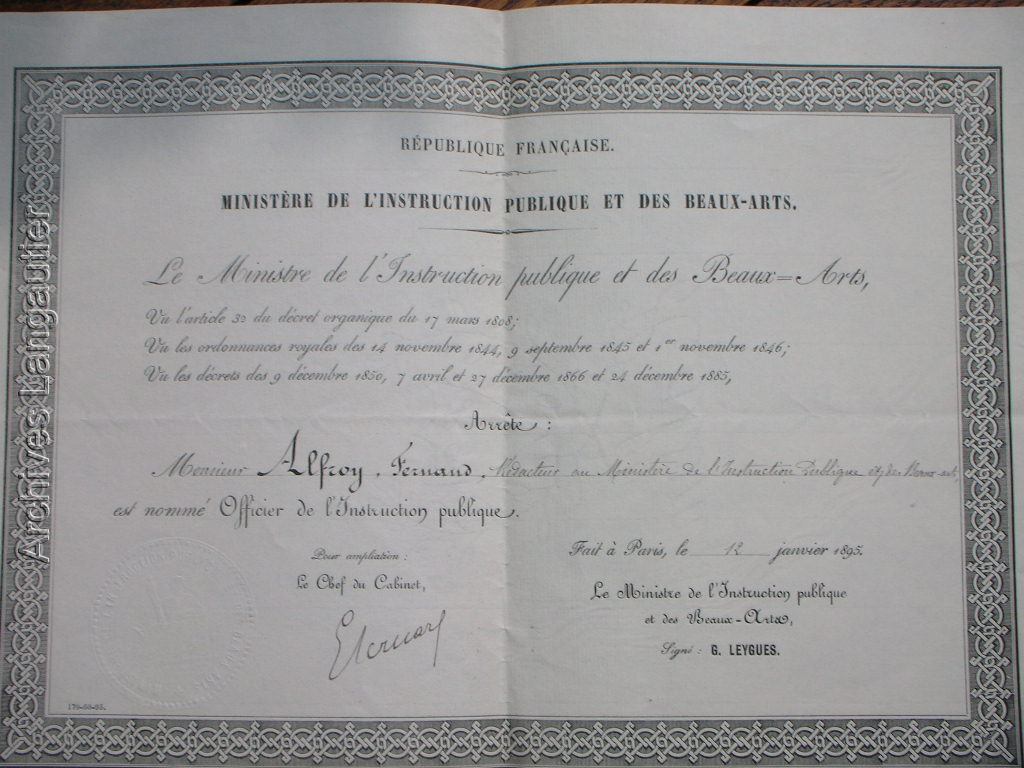 RÉPUBLIQUE FRANÇAISE.
MINISTÈRE DE L'INSTRUCTION PUBLIQUE ET DES BEAUX-ARTS.
Le Ministre de l'Instruction publique et des Beaux=Arts,
Vu l'article 32 du décret organique du 17 mars 1808;
Vu les ordonnances royales des 14 novembre 1844, 9 septembre 1845 et 1er novembre 1846;
Vu les décrets des 9 décembre 1850, 7 avril et 27 décembre 1866 et 24 décembre 1885,
Arrête :
Monsieur Alfroy, Fernand, Rédacteur au Ministère de l'Instruction Publique et des Beaux-arts,
est nommé Officier de l'Instruction publique.
Pour ampliation :
Le Chef du Cabinet,
Fait à Paris, le 12 janvier 1895.
Le Ministre de l'Instruction publique
et des Beaux-Arts,
Signé : G. LEYGUES.
Archives Langautier